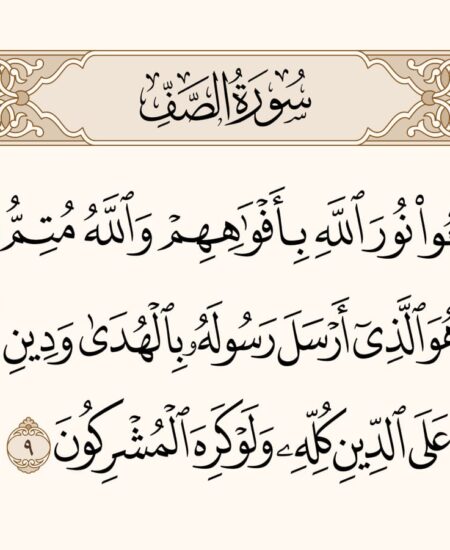 سُورَةُ الصَّفِّ
نُورَ ٱللَّهِ بِأَفۡوَٰهِهِمۡ وَٱللَّهُ مُتِمُّ
هُوَ ٱلَّذِيٓ أَرۡسَلَ رَسُولَهُۥ بِٱلۡهُدَىٰ وَدِينِ
عَلَى ٱلدِّينِ كُلِّهِۦ وَلَوۡ كَرِهَ ٱلۡمُشۡرِكُونَ ٩